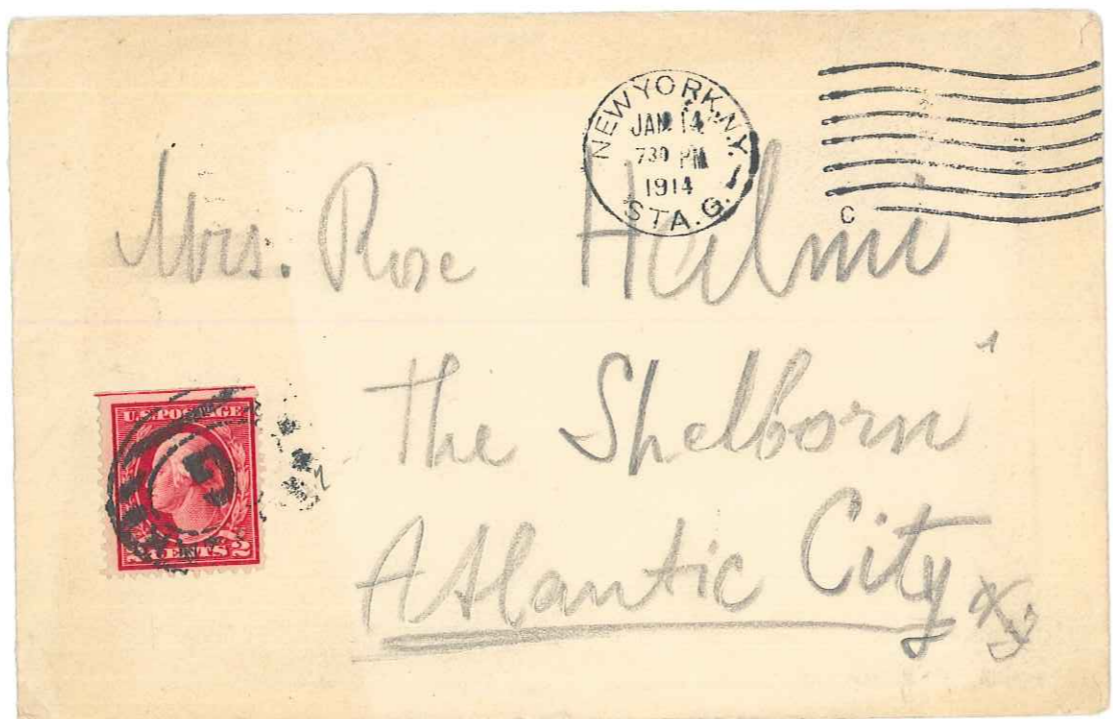 NEW YORK, N.Y.
JAN 14
730 PM
1914
STA. G.
C
Mrs. Rose
The Shelborn
Atlantic City
U.S. POSTAGE
2 CENTS 2